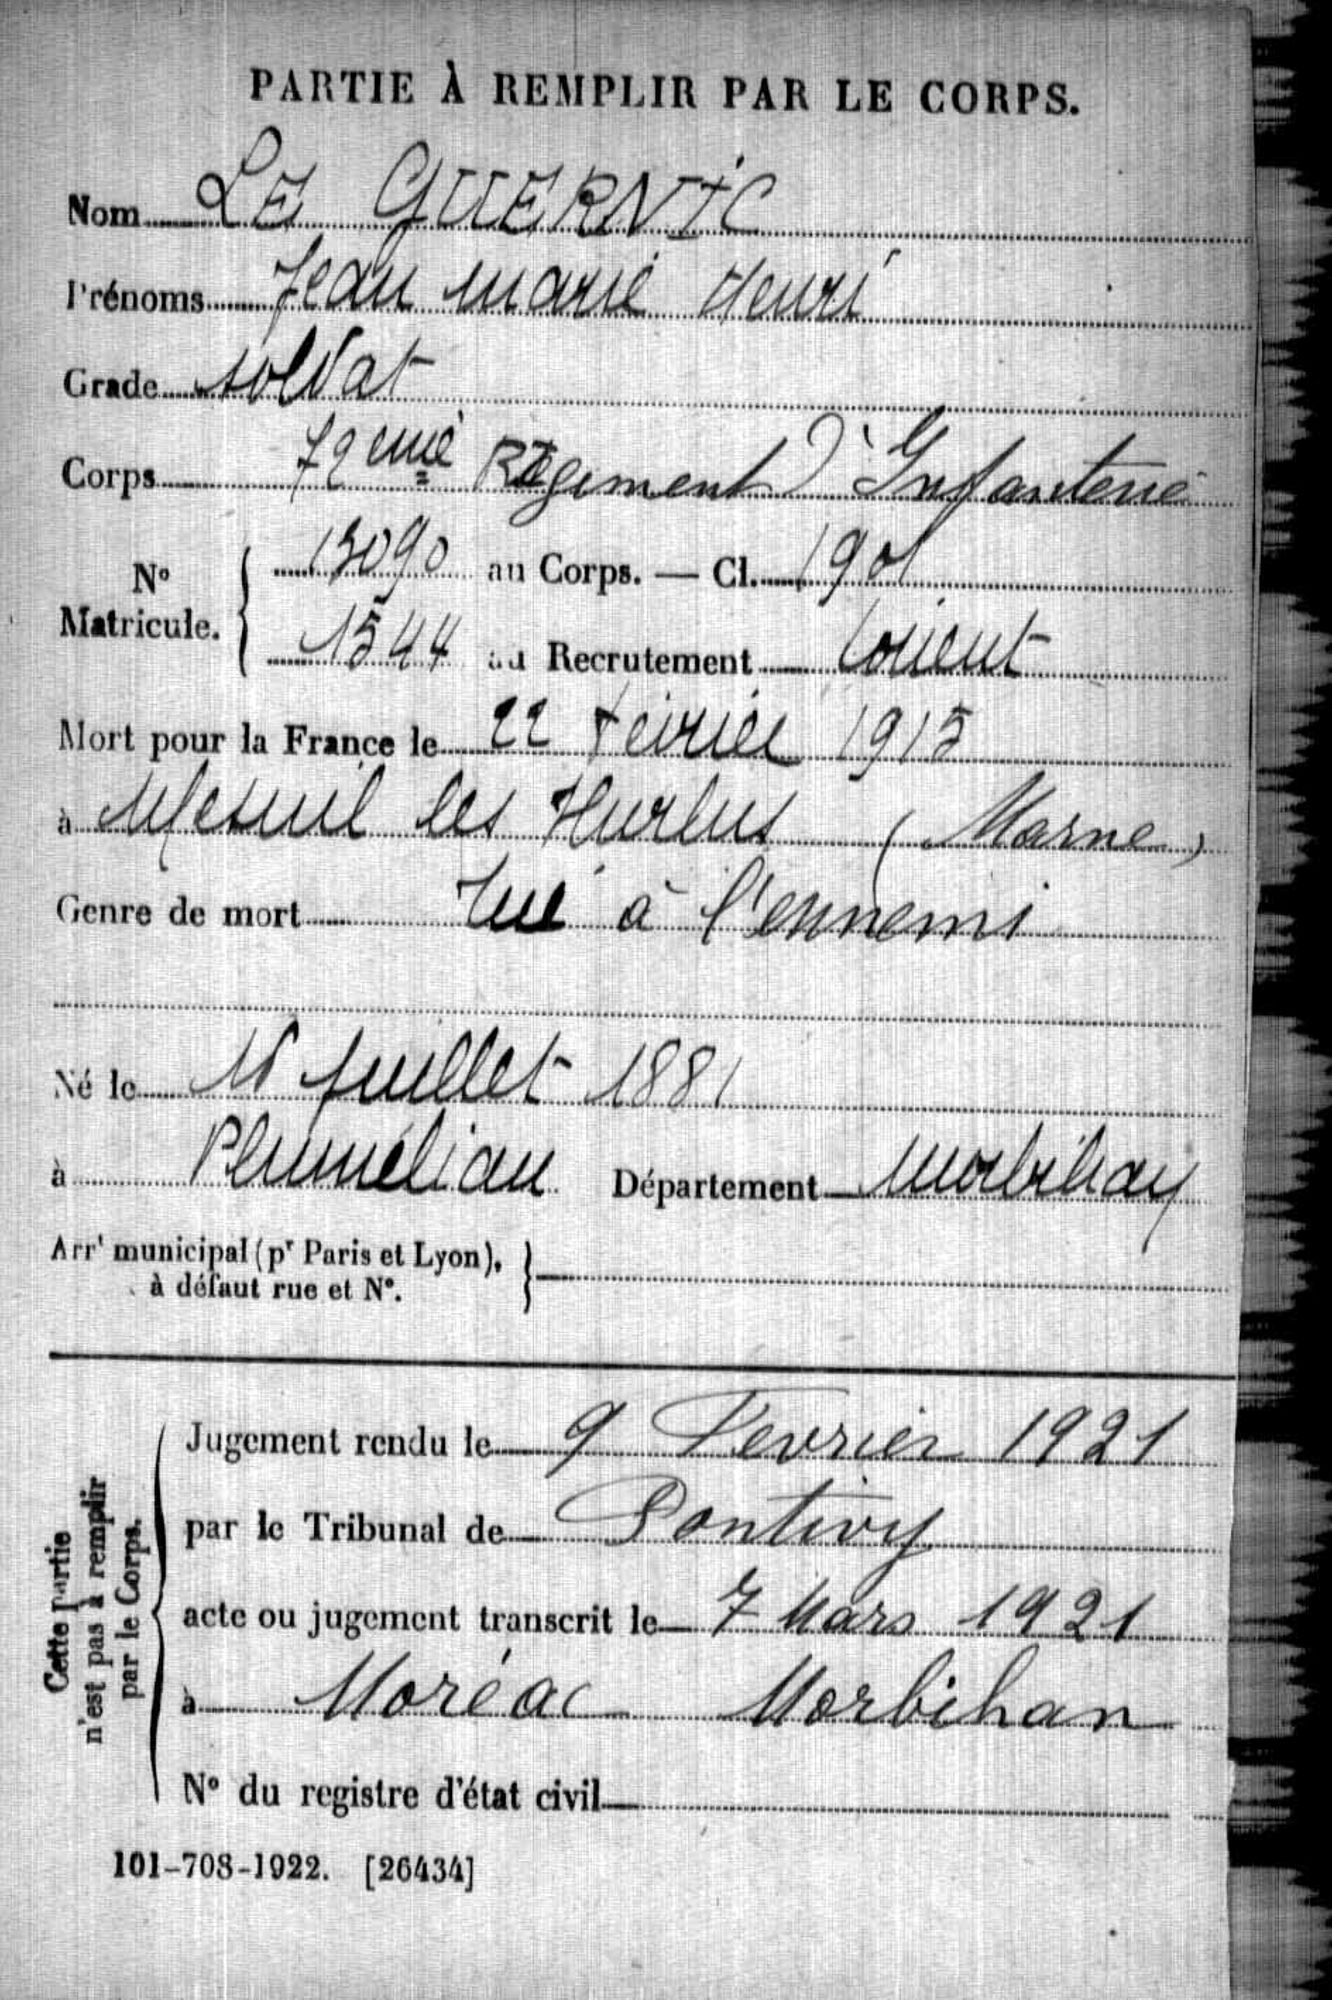 PARTIE À REMPLIR PAR LE CORPS.
Nom LE GUERNIC
Prénoms Jean Marie Henri
Grade soldat
Corps 72eme Régiment d'Infanterie
N° Matricule. { 13090 au Corps. — Cl. 1901
1544 au Recrutement Lorient
Mort pour la France le 22 Février 1915
à Mesnil les Hurlus (Marne)
Genre de mort tué à l'ennemi
Né le Juillet 1881
à Plumelian Département Morbihan
Arrt municipal (pr Paris et Lyon), }
à défaut rue et N°.
Cette partie
n'est pas à remplir
par le Corps.
Jugement rendu le 9 Fevrier 1921
par le Tribunal de Pontivy
acte ou jugement transcrit le 7 Mars 1921
à Moréac Morbihan
N° du registre d'état civil
101-708-1922. [26434]